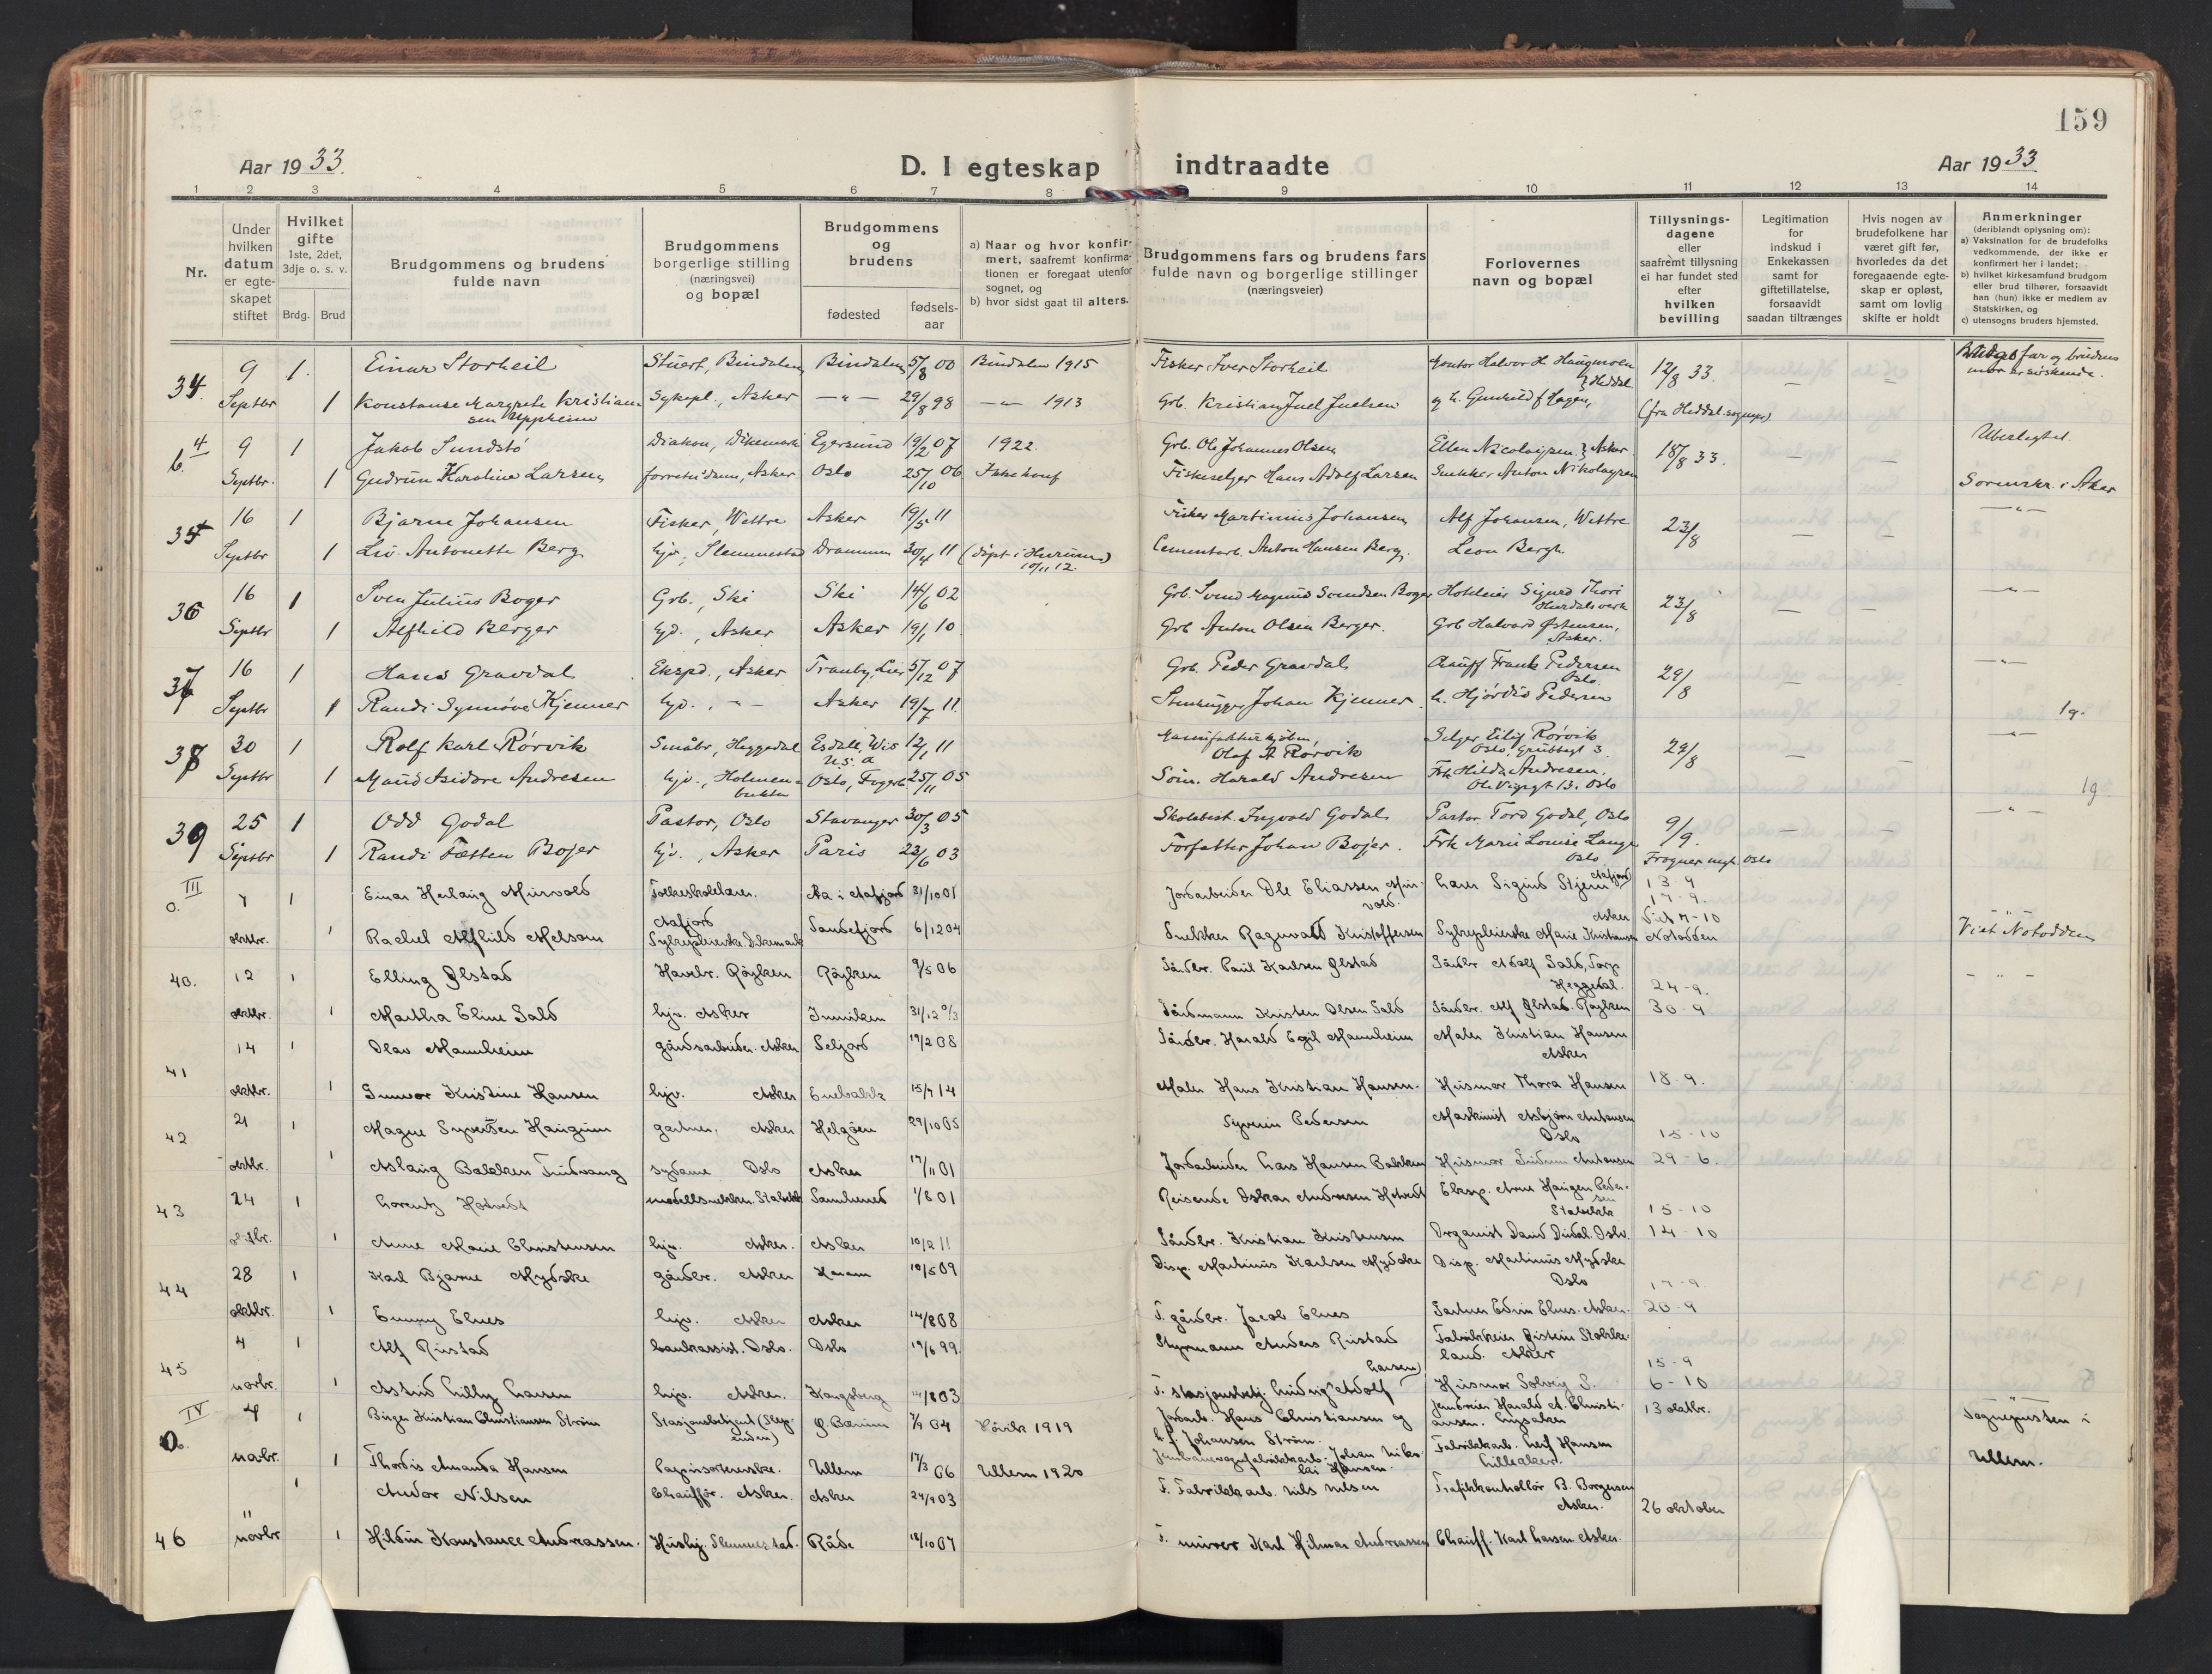 159
Aar 1933.
D. I egteskap indtraadte
Aar 1933
1 2 3 4 5 6 7 8 9 10 11 12 13 14
Nr.
Under hvilken datum er egteskapet stiftet
Hvilket gifte 1ste, 2det, 3dje o. s. v.
Brdg. Brud
Brudgommens og brudens fulde navn
Brudgommens borgerlige stilling (næringsvei) og bopæl
Brudgommens og brudens
fødested
fødsels-aar
a) Naar og hvor konfirmert, saafremt konfirmationen er foregaat utenfor sognet, og
b) hvor sidst gaat til alters.
Brudgommens fars og brudens fars fulde navn og borgerlige stillinger (næringsveier)
Forlovernes navn og bopæl
Tillysningsdagene eller saafremt tillysning ei har fundet sted efter hvilken bevilling
Legitimation for indskud i Enkekassen samt for giftetillatelse, forsaavidt saadan tiltrænges
Hvis nogen av brudefolkene har været gift før, hvorledes da det foregaaende egteskap er opløst, samt om lovlig skifte er holdt
Anmerkninger (deriblandt oplysning om):
a) Vaksination for de brudefolks vedkommende, der ikke er konfirmert her i landet;
b) hvilket kirkesamfund brudgom eller brud tilhører, forsaavidt han (hun) ikke er medlem av Statskirken, og
c) utensogns bruders hjemsted.
34. 9 1. Einar Storheil Stuert, Bindalen Bindalen 5/8 00 Bindalen 1915 Fisker Iver Storheil 12/8 33. — —
Septbr 1 Konstanse Margrete Kristiansen Uppheim Sykepl., Asker —"— 29/8 98 —"— 1913 Grb. Kristian Juel Juelsen (fra Heddal sogn)
4 9 1 Jakob Sundstö Diakon, Dikemark Egersund 19/2 07 1922. Grb. Ole Johannes Olsen Ellen Nicolaisen } Asker 18/8 33. — — Ubeslegtet.
Septbr. 1 Gudrun Karoline Larsen Asker Oslo 25/10 06 Ikke konf Fiskeselger Hans Adolf Larsen Snekker Anton Nikolaysen Sorenskr. i Aker
16 1 Bjarne Johansen Fisker, Wettre Asker 19/5 11 Fisker Martinius Johansen Alf Johansen, Wettre 23/8 — — —"—
Septbr 1 Liv Antonette Berg hjv., Slemmestad Drammen 30/4 11 (døpt i Hurum) 10/11 12. Cementarb. Anton Hansen Berg. Leon Bergh.
36 16 1 Sven Julius Boger Grb., Ski Ski 14/6 02 Grb. Svend Magnus Svendsen Boger Hoteleier Sigurd Thori Hurdalsverk 23/8 — — —"—
Septbr 1 Alfhild Berger hjv., Asker Asker 19/1 10 Grb Anton Olsen Berger. Grb Halvard Østensen, Asker.
37 16 1 Hans Gravdal Ekspd., Asker Tranby, Lier 5/12 07 Grb. Peder Gravdal Chauff Frank Pedersen Oslo. 29/8 — — —"—
Septbr 1 Randi Synnöve Kjenner hjv., —"— Asker 19/7 11. Stenhugger Johan Kjenner. h. Hjördis Pedersen 1g.
38 30 1 Rolf Karl Rörvik Småbr, Heggedal Esdall, Wis U.S.A 12/1 11 Olaf A Rörvik Selger Eilif Rörvik Oslo, 29/8 — — —"—
Septbr 1 Maud Isidore Andresen hjv., Holmenbukten Oslo, Fagerb. 25/11 05 Harald Andresen Frk Hilda Andresen. Ole Vigsgt 13. Oslo 1g.
39 25 1 Odd Godal Pastor, Oslo Stavanger 30/3 05 Skolebest. Ingvald Godal Pastor Tord Godal, Oslo 9/9. — — —"—
Septbr 1 Randi Fætten Bojer hjv., Asker Paris 23/6 03 Forfatter Johan Bojer. Frk Marie Louise Lange Oslo Frogner mgh. Oslo
III 0. 7 1 Einar Herlaug Murvold Folkeskolelærer. Aa i Aafjord 31/10 01 Jordarbeider Ole Eliassen Murvold. Lærer Sigurd Stjern Aafjord 13-9 17-9.
oktbr. 1 Rachel Alfhild Melsom Sykepleierske Dikemark Sandefjord 6/12 04 Snekker Ragnvald Kristoffersen Sykepleierske Marie Kristiansen Asker Viet 7-10 Notodden Viet Notodden
40. 12 1 Elling Ølstad Havebr. Röyken Röyken 9/5 06 Gårdbr. Paul Karlsen Ølstad Gårdbr Adolf Sald, Torp Heggedal. 24-9. —"—
oktbr. 1 Martha Eline Sald hjv. Asker Inviken 31/12 Gårdmann Kristen Olsen Sald Gårdbr. Alf Ølstad. Röyken 30-9
41 14 1 Olav Mannheim gårdsarbeider. Asker Seljord 19/2 08 Gårdbr. Harald Egil Mannheim Maler Kristian Hansen Asker
oktbr. 1 Gunvor Kristine Hansen hjv. Asker Enebakk 15/7 14 Maler Hans Kristian Hansen. Husmor Thora Hansen 18-9.
42 21 1 Magne Syversen Haugum gartner. Asker Helgöen 29/10 05 Syverin Pedersen Maskinist Asbjörn Antonsen Oslo 15-10
oktbr. 1 Aslaug Bakken Tindvang sydame Oslo Asker 17/11 01 Jordarbeider Lars Hansen Bakken Husmor Gudrun Antonsen 29-6.
43 24 1 Lorentz Hotvedt modellsnekker. Stabekk Sannherred 1/8 01 Reisende Oskar Andresen Hotvedt Eksp. Arne Haugen Pedersen Stabekk 15-10
oktbr. 1 Anne Marie Christensen hjv. Asker. Asker 10/2 11 Gårdbr. Kristian Kristensen Organist David Dirdal. Oslo. 14-10
44 28 1 Karl Bjarne Mydske gårdbr. Asker Haram 10/5 09 Disp. Martinus Karlsen Mydske Disp. Martinus Mydske Oslo 17-9.
oktbr. 1 Emmy Elnes hjv. Asker Asker 14/8 08 F. gårdbr. Jacob Elnes Gartner Edvin Elnes. Asker. 20-9
45 4 1 Alf Rustad bankassist. Oslo. Oslo 19/6 99. Styrmann Anders Rustad Fabrikkeier Øistein Stokkeland. Asker 15-9
novbr. 1 Astrid Lilly Larsen hjv. Asker. Kongsberg 14/8 03 F. stasjonsbetj. Ludvig Adolf Larsen) Husmor Solveig S. 6-10
IV 4 1 Birger Kristian Christiansen Ström Stasjonsbetjent (Slependen) Ø. Bærum 7/9 04 Hövik 1919 Jordarb. Hans Christiansen og h.f. Johansen Ström. Harald A. Christiansen. Lysaker 13 oktbr. Sogneprsten i
novbr. 1 Thordis Amanda Hansen Papirsorterske. Ullern 17/3 06 Ullern 1920 Johan Nikolai Hansen. Fabrikkarb. Leif Hansen Lilleaker. Ullern.
1 Andor Nilsen Chauffør. Asker. Asker 24/9 03 F. Fabrikkarb. Nils Nilsen Trafikkontrollör B. Borgersen Asker. 26 oktober
46 11 novbr 1 Hildur Konstance Andreassen. Hushj. Slemmestad. Råde 18/10 07 F. murer Karl Hilmar Andreassen Chauff. Karl Larsen Asker.